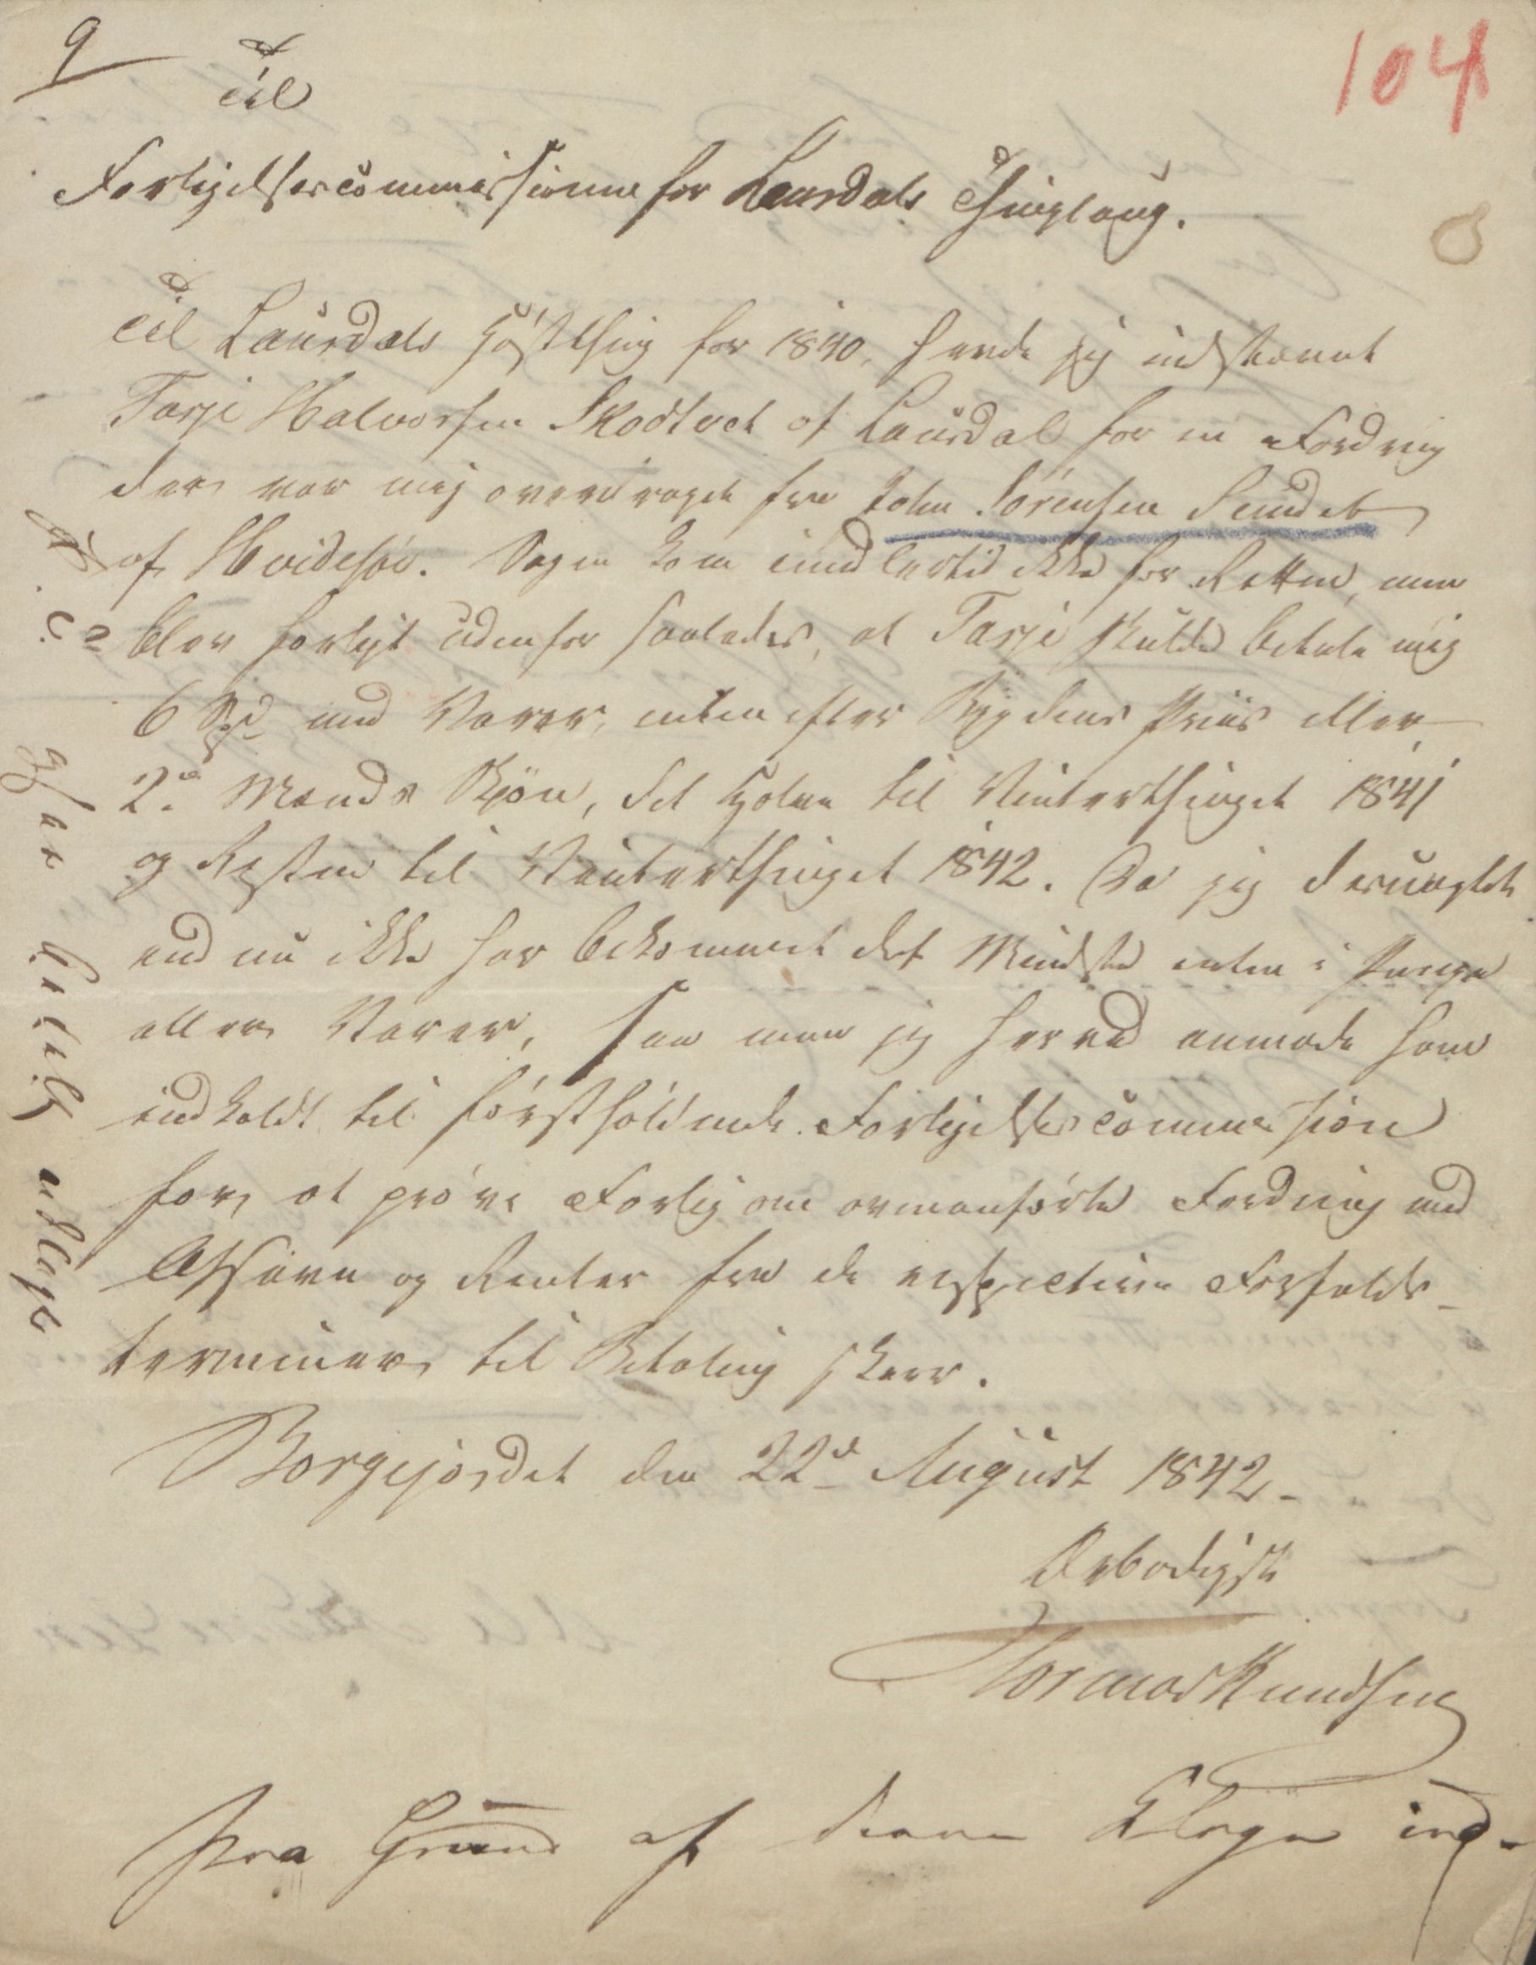 9
104
Til
Forligelsescommissionen for Laurdals Thinglaug.
Til Laurdals Høstthing for 1840, havde jeg indstævnt
Tarje Halvorsen Skodtvet af Laurdal for en Fordring
der var mig overdragen fra John Sørensen Sundet
af Hvidesøe. Sagen kom imidlertid ikke for Retten, men
blev forligt udenfor saaledes, at Tarje skulde betale mig
6 Spd med Varer, enten efter Bygdens Priis eller
2de Mænds Skjøn, det Halve til Vinterthinget 1841
og Resten til Vinterthinget 1842. Da jeg desuagtet
end nu ikke har bekommet det Mindste enten i Penge
eller Varer, saa maa jeg herved anmode ham
indkaldt til førstholdende Forligelsescommission
for, at prøve Forlig om ovenanførte Fordring med
Afsavn og Renter fra de respective Forfalds-
terminer, til Betaling skeer.
Borgejordet den 22de August 1842.
Ærbødigst
Tormod Knudsen
Paa Grund af denne Klage ind-
har betalt